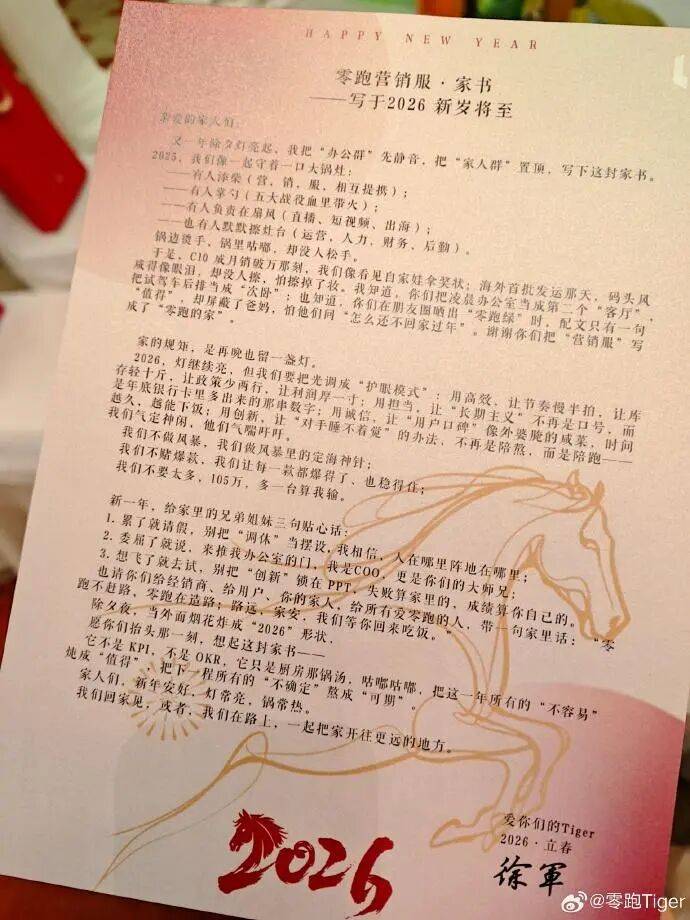 HAPPY NEW YEAR
零跑营销服·家书
——写于2026 新岁将至
亲爱的家人们：
又一年除夕灯亮起，我把“办公群”先静音，把“家人群”置顶，写下这封家书。
2025，我们像一起守着一口大锅灶：
——有人添柴（营，销，服，相互提携）；
——有人掌勺（五大战役血里带火）；
——有人负责在扇风（直播、短视频、出海）；
——也有人默默擦灶台（运营，人力，财务，后勤）。
锅边烫手，锅里咕嘟，却没人松手。
于是，C10 威月销破万那刻，我们像看见自家娃拿奖状；海外首批发运那天，码头风
咸得像眼泪，却没人擦，怕擦掉了妆。我知道，你们把凌晨办公室当成第二个“客厅”，
把试驾车后排当成“次卧”；也知道，你们在朋友圈晒出“零跑绿”时，配文只有一句
“值得”，却屏蔽了爸妈，怕他们问“怎么还不回家过年”。谢谢你们把“营销服”写
成了“零跑的家”。
家的规矩，是再晚也留一盏灯。
2026，灯继续亮，但我们要把光调成“护眼模式”：用高效，让节奏慢半拍，让库
存轻十斤，让政策少两行，让利润厚一寸；用担当，让“长期主义”不再是口号，而
是年底银行卡里多出来的那串数字；用诚信，让“用户口碑”像外婆腌的咸菜，时间
越久，越能下饭；用创新，让“对手睡不着觉”的办法，不再是陪熬，而是陪跑——
我们气定神闲，他们气喘吁吁。
我们不做风暴，我们做风暴里的定海神针；
我们不赌爆款，我们让每一款都爆得了、也稳得住；
我们不要太多，105万，多一台算我输。
新一年，给家里的兄弟姐妹三句贴心话：
1. 累了就请假，别把“调休”当摆设，我相信，人在哪里阵地在哪里；
2. 委屈了就说，来推我办公室的门，我是COO，更是你们的大师兄；
3. 想飞了就去试，别把“创新”锁在 PPT，失败算家里的，成绩算你自己的。
也请你们给经销商、给用户、你的家人，给所有爱零跑的人，带一句家里话：“零
跑不赶路，零跑在造路；路远，家安，我们等你回来吃饭。”
除夕夜，当外面烟花炸成“2026”形状，
愿你们抬头那一刻，想起这封家书——
它不是 KPI，不是 OKR，它只是厨房那锅汤，咕嘟咕嘟，把这一年所有的“不容易”
炖成“值得”，把下一程所有的“不确定”熬成“可期”。
家人们，新年安好，灯常亮，锅常热。
我们回家见，或者，我们在路上，一起把家开往更远的地方。
爱你们的Tiger
2026·立春
徐軍
2026
@零跑Tiger